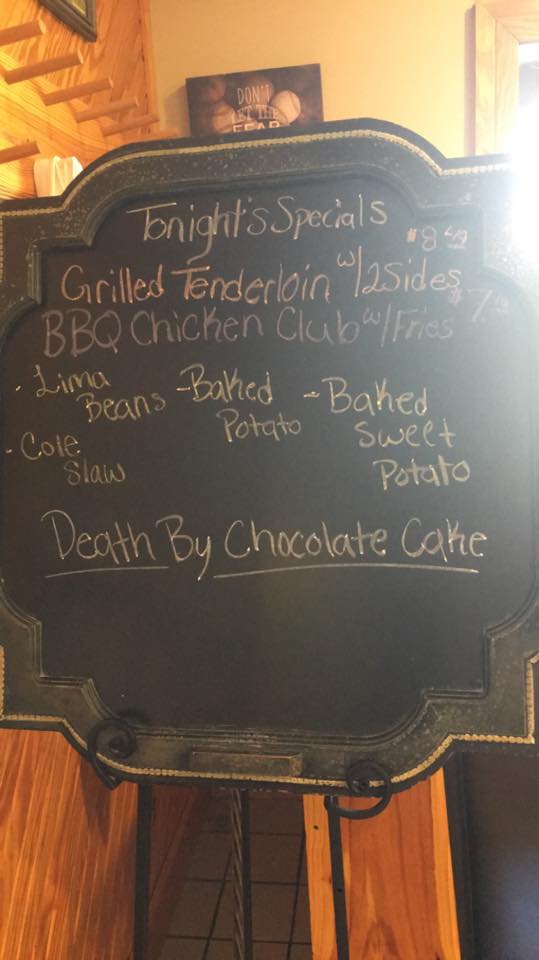 DON'T
LET THE
FEAR
Tonight's Specials
Grilled Tenderloin w/2Sides $8
BBQ Chicken Club w/Fries $7
- Lima Beans
- Baked Potato
- Baked Sweet Potato
- Cole Slaw
Death By Chocolate Cake